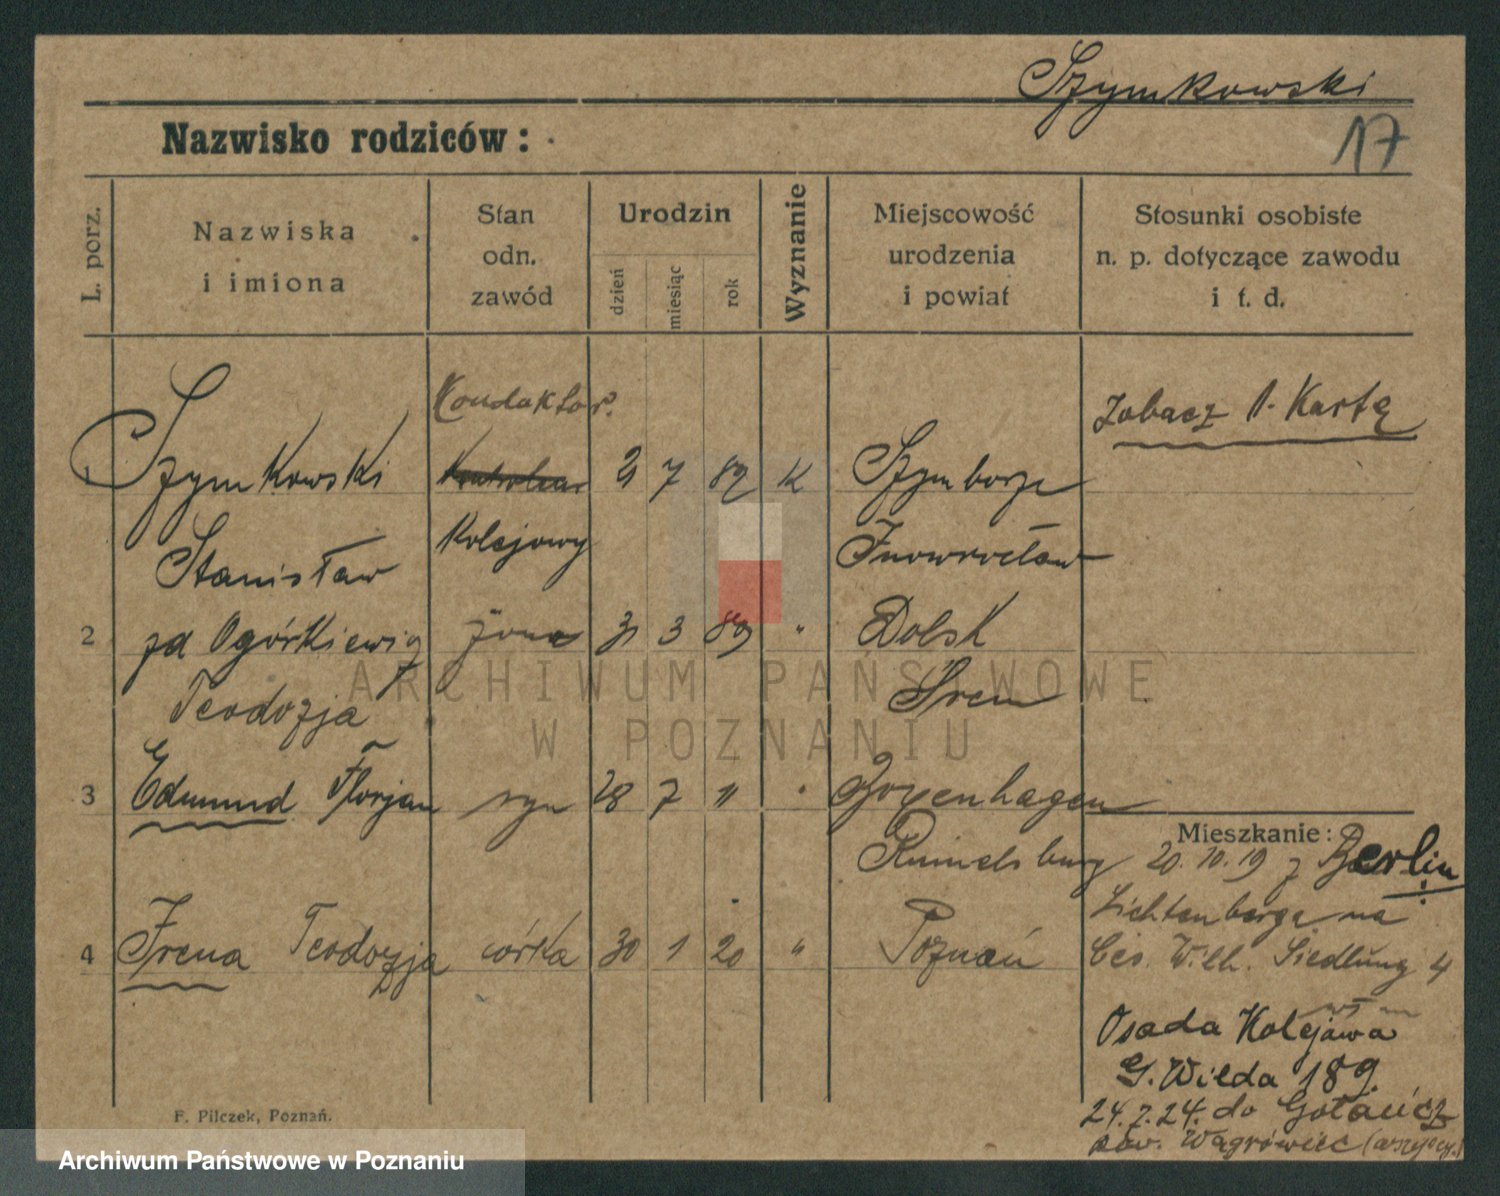 Szymkowski
17
Nazwisko rodziców:
L. porz.
Nazwiska
i imiona
Stan
odn.
zawód
Urodzin
dzień
miesiąc
rok
Wyznanie
Miejscowość
urodzenia
i powiat
Stosunki osobiste
n. p. dotyczące zawodu
i t. d.
Konduktor
Zobacz A. Kartę
1 Szymkowski 7 89 K Szymborze
Stanisław Kolejowy Inowrocław
2 zd Ogórkiewicz żona 31 3 89 " Dolsk
Teodozja Śrem
3 Edmund Florjan syn 28 7 11 " Boxenhagen
Rumelsburg
Mieszkanie:
20.10.19 z Berlin
Lichtenberga na
4 Irena Teodozja córka 30 1 20 " Poznań
Ces. Wilh. Siedlung 4
Osada Kolejowa
G. Wilda 189.
24.7.24. do Gołańcz
pow. Wągrówiec (wszyscy)
F. Pilczek, Poznań.
ARCHIWUM PAŃSTWOWE
W POZNANIU
Archiwum Państwowe w Poznaniu